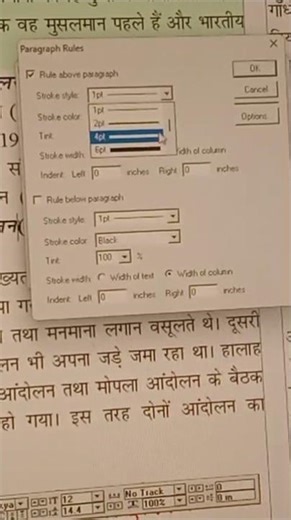 क वह मुसलमान पहले हैं और भारतीय
Paragraph Rules
Rule above paragraph
OK
Stroke style: 1pt
Cancel
Stroke color: 1pt
2pt
Options
Tint: 4pt
6pt
Stroke width: idth of column
Indent: Left 0 inches Right 0 inches
Rule below paragraph
Stroke style: 1pt
Stroke color: Black
Tint: 100 %
Stroke width: Width of text Width of column
Indent: Left 0 inches Right 0 inches
तथा मनमाना लगान वसूलते थे। दूसरी
लन भी अपना जड़े जमा रहा था। हालाह
आंदोलन तथा मोपला आंदोलन के बैठक
हो गया। इस तरह दोनों आंदोलन का
12 No Track 0
14.4 100% 0 in